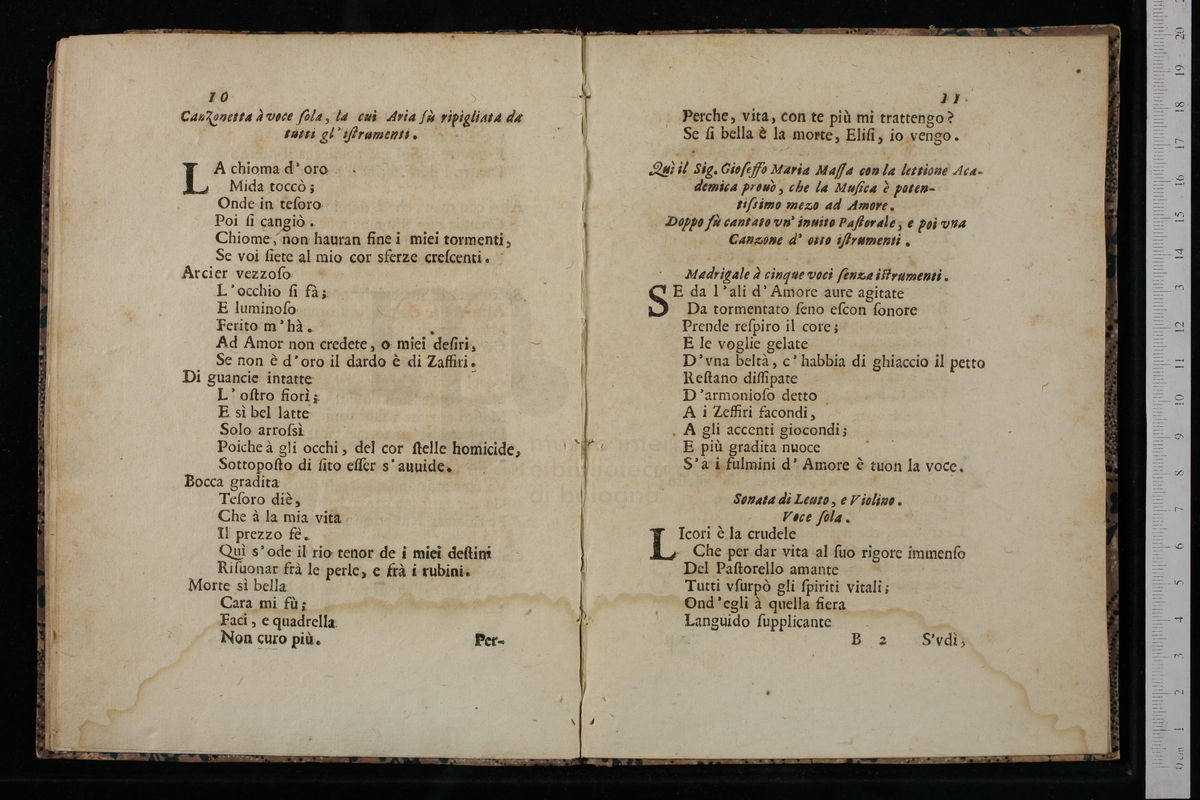 10
Canzonetta à voce ſola, la cui Aria fù ripigliata da
tutti gl' iſtrumenti.
LA chioma d' oro
Mida toccò;
Onde in teſoro
Poi ſi cangiò.
Chiome, non hauran fine i miei tormenti,
Se voi ſiete al mio cor sferze creſcenti.
Arcier vezzoſo
L'occhio ſi fà;
E luminoſo
Ferito m'hà.
Ad Amor non credete, o miei deſiri,
Se non è d'oro il dardo è di Zaffiri.
Di guancie intatte
L' oſtro fiorì;
E sì bel latte
Solo arroſsì
Poiche à gli occhi, del cor ſtelle homicide,
Sottopoſto di ſito eſſer s'auuide.
Bocca gradita
Teſoro diè,
Che à la mia vita
Il prezzo fè.
Quì s'ode il rio tenor de i miei deſtini
Riſuonar frà le perle, e frà i rubini.
Morte sì bella
Cara mi fù;
Faci, e quadrella
Non curo più.
Per-
11
Perche, vita, con te più mi trattengo?
Se ſi bella è la morte, Eliſi, io vengo.
Quì il Sig. Gioſeffo Maria Maſſa con la lettione Aca-
demica prouò, che la Muſica è poten-
tiſsimo mezo ad Amore.
Doppo fù cantato vn' inuito Paſtorale, e poi vna
Canzone d' otto iſtrumenti.
Madrigale à cinque voci ſenza iſtrumenti.
SE da l'ali d' Amore aure agitate
Da tormentato ſeno eſcon ſonore
Prende reſpiro il core;
E le voglie gelate
D'vna beltà, c'habbia di ghiaccio il petto
Reſtano diſſipate
D'armonioſo detto
A i Zeffiri facondi,
A gli accenti giocondi;
E più gradita nuoce
S'a i fulmini d' Amore è tuon la voce.
Sonata di Leuto, e Violino.
Voce ſola.
LIcori è la crudele
Che per dar vita al ſuo rigore immenſo
Del Paſtorello amante
Tutti vſurpò gli ſpiriti vitali;
Ond'egli à quella fiera
Languido ſupplicante
B 2 S'vdì,